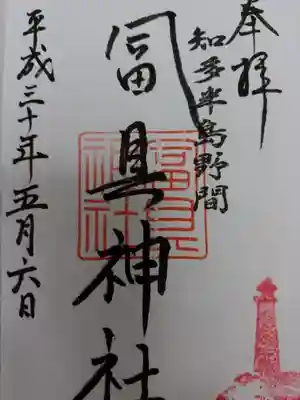 奉拝
知多半島野間
冨具神社
平成三十年五月六日
冨具
神社